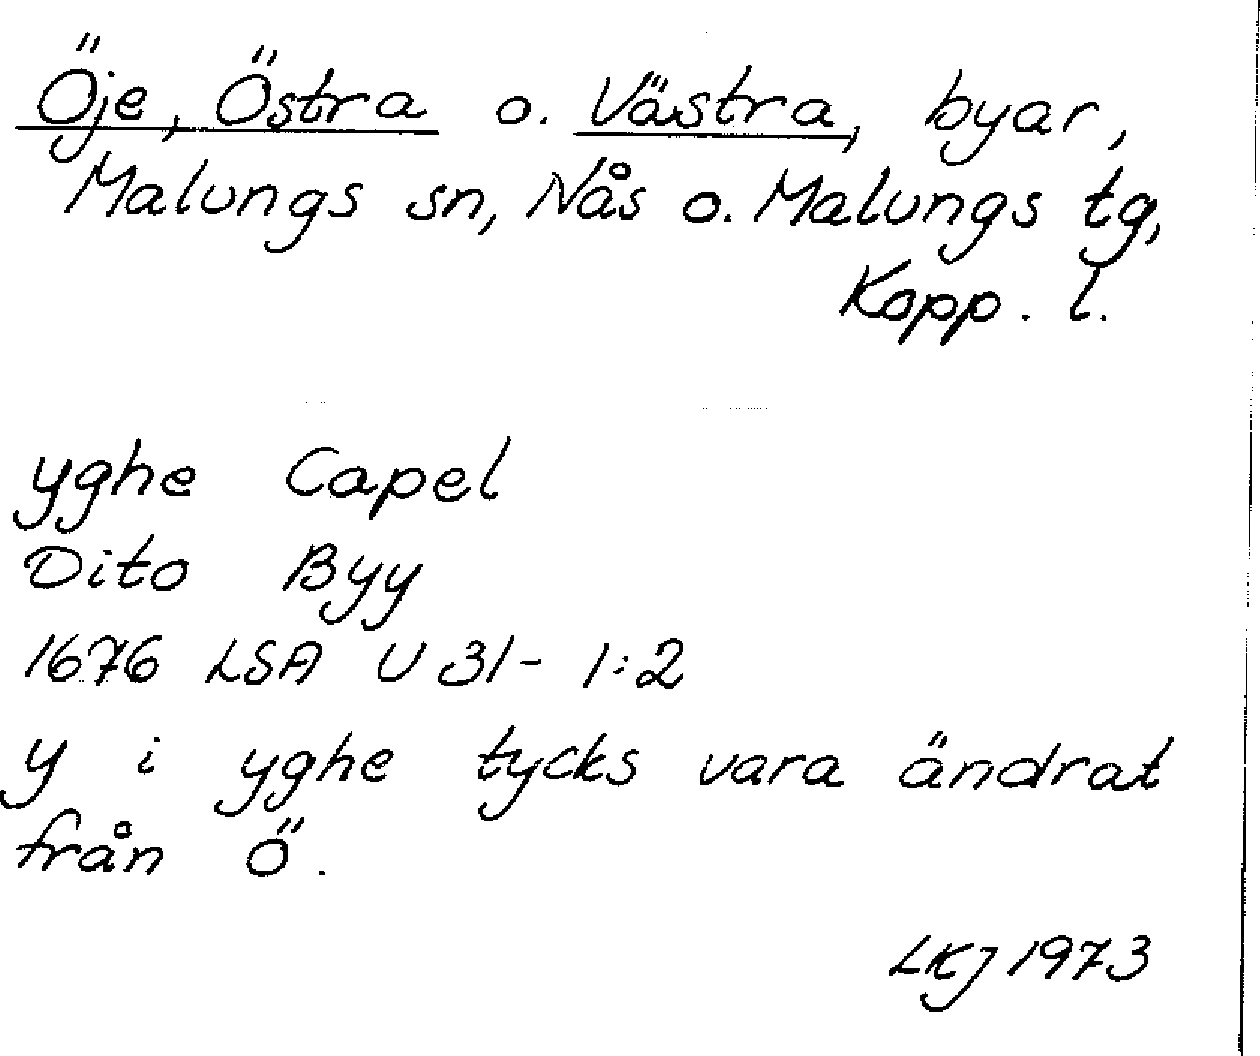 Öje, Östra o. Västra, byar,
Malungs sn, Nås o. Malungs tg,
Kopp. l.
yghe Capel
Dito Byy
1676 LSA U 31- 1:2
y i yghe tycks vara ändrat
från ö.
LKJ 1973